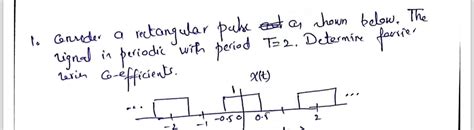 1. Consider a rectangular pulse as shown below. The
signal is periodic with period T=2. Determine fourier
series Co-efficients.
X(t)
... 1 ...
-2 -1 -0.5 0 0.5 2